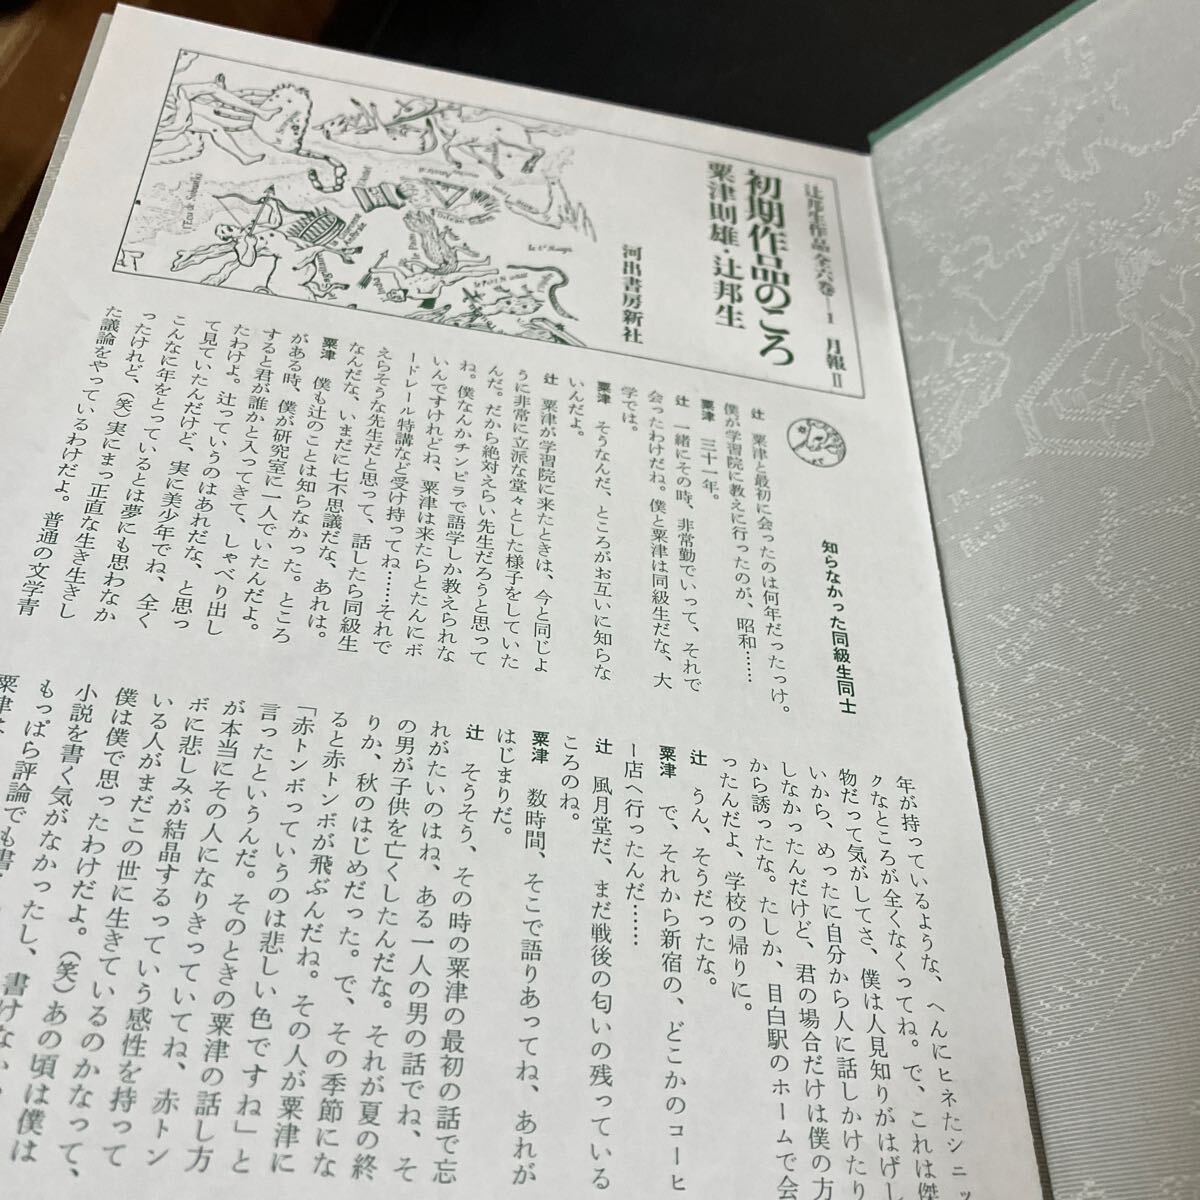 辻邦生作品全六巻―1 月報II
初期作品のころ
粟津則雄・辻邦生
河出書房新社
知らなかった同級生同士
辻 粟津と最初に会ったのは何年だったっけ。
僕が学習院に教えに行ったのが、昭和……
粟津 三十一年。
辻 一緒にその時、非常勤でいって、それで
会ったわけだね。僕と粟津は同級生だな、大
学では。
粟津 そうなんだ、ところがお互いに知らな
いんだよ。
辻 粟津が学習院に来たときは、今と同じよ
うに非常に立派な堂々とした様子をしていた
んだ。だから絶対えらい先生だろうと思って
ね。僕なんかチンピラで語学しか教えられな
いんですけれどね、粟津は来たらとたんにボ
ードレール特講など受け持ってね……それで
えらそうな先生だと思って、話したら同級生
なんだな、いまだに七不思議だな、あれは。
粟津 僕も辻のことは知らなかった。ところ
がある時、僕が研究室に一人でいたんだよ。
すると君が誰かと入ってきて、しゃべり出し
たわけよ。辻っていうのはあれだな、と思っ
て見ていたんだけど、実に美少年でね、全く
こんなに年をとっているとは夢にも思わなか
ったけれど、(笑)実にまっ正直な生き生きし
た議論をやっているわけだよ。普通の文学青
年が持っているような、へんにヒネたシニッ
クなところが全くなくってね。で、これは傑
物だって気がしてさ、僕は人見知りがはげし
いから、めったに自分から人に話しかけたり
しなかったんだけど、君の場合だけは僕の方
から誘ったな。たしか、目白駅のホームで会
ったんだよ、学校の帰りに。
辻 うん、そうだったな。
粟津 で、それから新宿の、どこかのコーヒ
ー店へ行ったんだ……
辻 風月堂だ、まだ戦後の匂いの残っている
ころのね。
粟津 数時間、そこで語りあってね、あれが
はじまりだ。
辻 そうそう、その時の粟津の最初の話で忘
れがたいのはね、ある一人の男の話でね、そ
の男が子供を亡くしたんだな。それが夏の終
りか、秋のはじめだった。で、その季節にな
ると赤トンボが飛ぶんだね。その人が粟津に
「赤トンボっていうのは悲しい色ですね」と
言ったというんだ。そのときの粟津の話し方
が本当にその人になりきっていてね、赤トン
ボに悲しみが結晶するっていう感性を持って
いる人がまだこの世に生きているのかなって、
僕は僕で思ったわけだよ。(笑)あの頃は僕は
小説を書く気がなかったし、書けない
もっぱら評論でも書
粟津